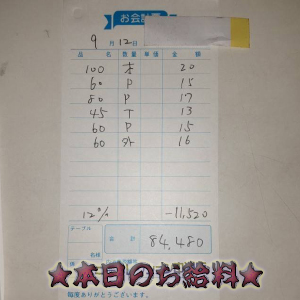 お会計
9月12日
品名 数量 単価 金額
100 本 20
60 P 15
80 P 17
45 T 13
60 P 15
60 外 16
12% -11,520
テーブル
合計 84,480
名様
★本日のお給料★
毎度ありがとうございます。